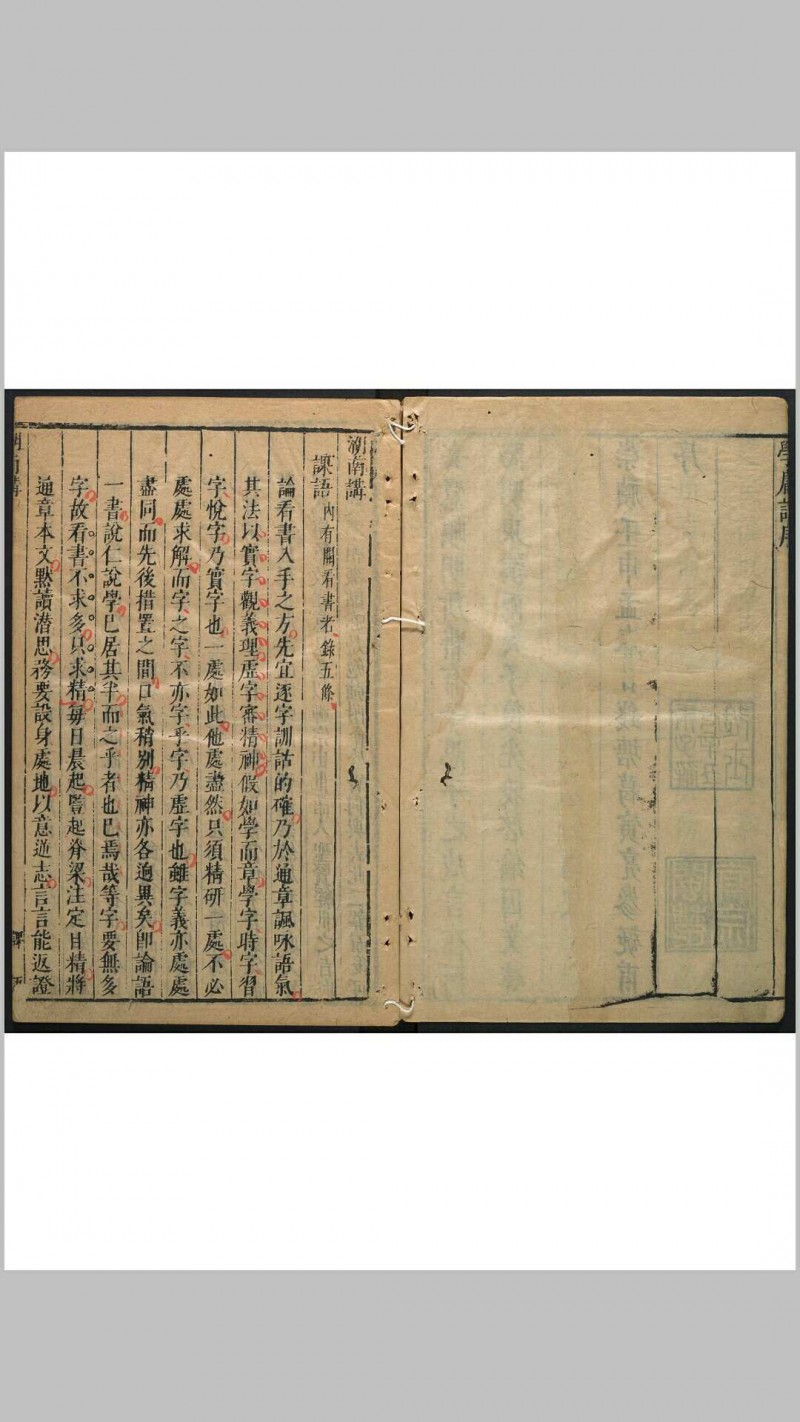 湖南講
課語 內有關看書者錄五條
論看書入手之方先宜逐字訓詁的確乃於通章諷咏語氣
其法以實字觀義理虛字審精神假如學而章學字時字習
字悅字乃實字也一處如此他處盡然只須精研一處不必
處處求解而字之字不亦字乎字乃虛字也雖字義亦處處
盡同而先後措置之間口氣稍別精神亦各逈異矣卽論語
一書說仁說學已居其半而之乎者也已焉哉等字要無多
字故看書不求多只求精每日晨起豎起脊梁注定目精將
通章本文默讀潛思務要設身處地以意逆志言言能返證